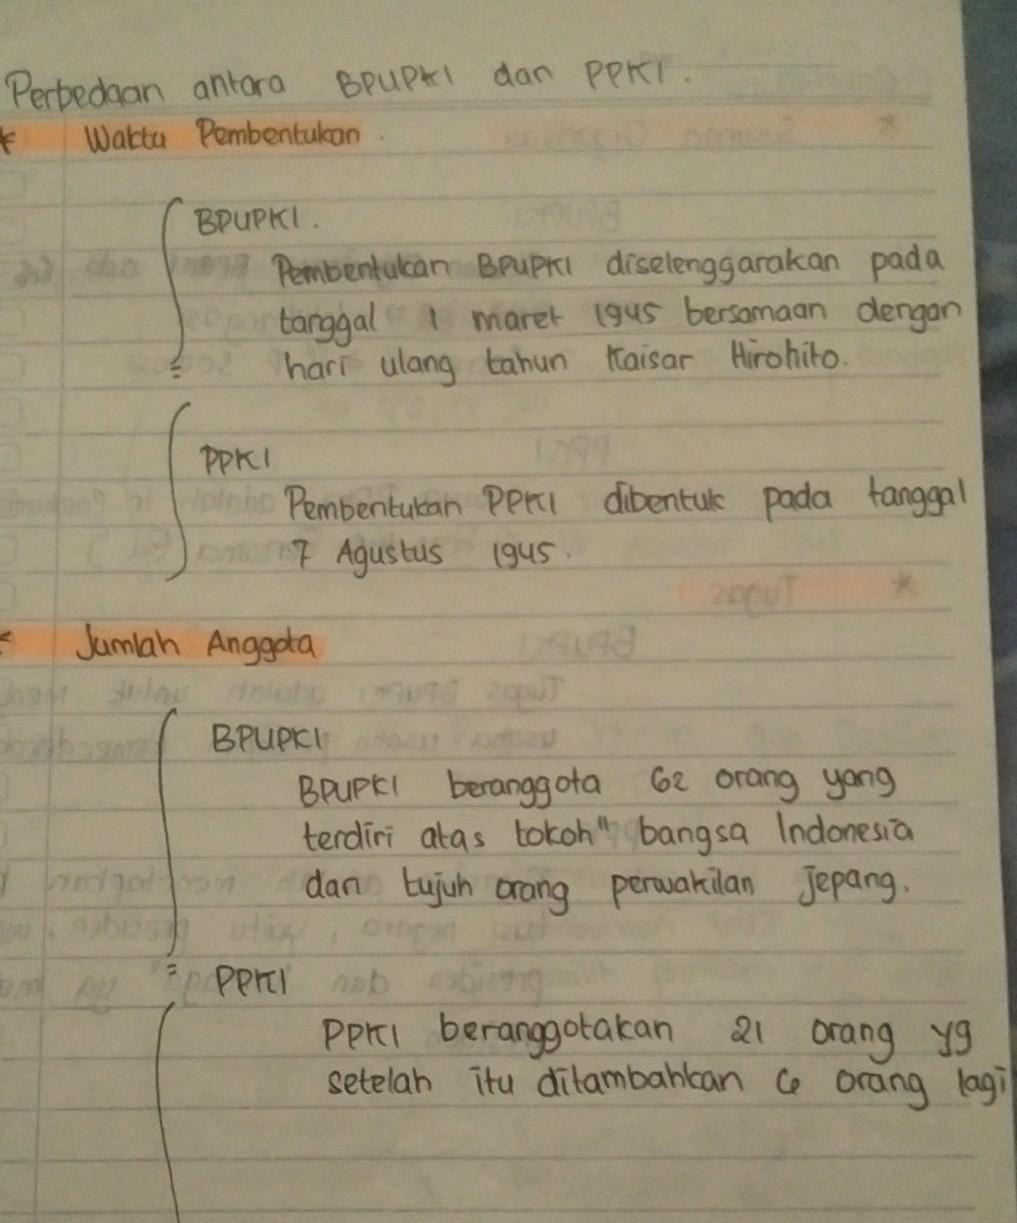 Perbedaan antara BPUPKI dan PPKI.
* Waktu Pembentukan.
BPUPKI.
Pembentukan BPUPKI diselenggarakan pada
tanggal 1 maret 1945 bersamaan dengan
hari ulang tahun Kaisar Hirohito.
PPKI
Pembentukan PPKI dibentuk pada tanggal
7 Agustus 1945.
* Jumlah Anggota
BPUPKI
BPUPKI beranggota 62 orang yang
terdiri atas tokoh" bangsa Indonesia
dan tujuh orang perwakilan jepang.
PPKI
PPKI beranggotakan 21 orang yg
setelah itu ditambahkan 6 orang lagi